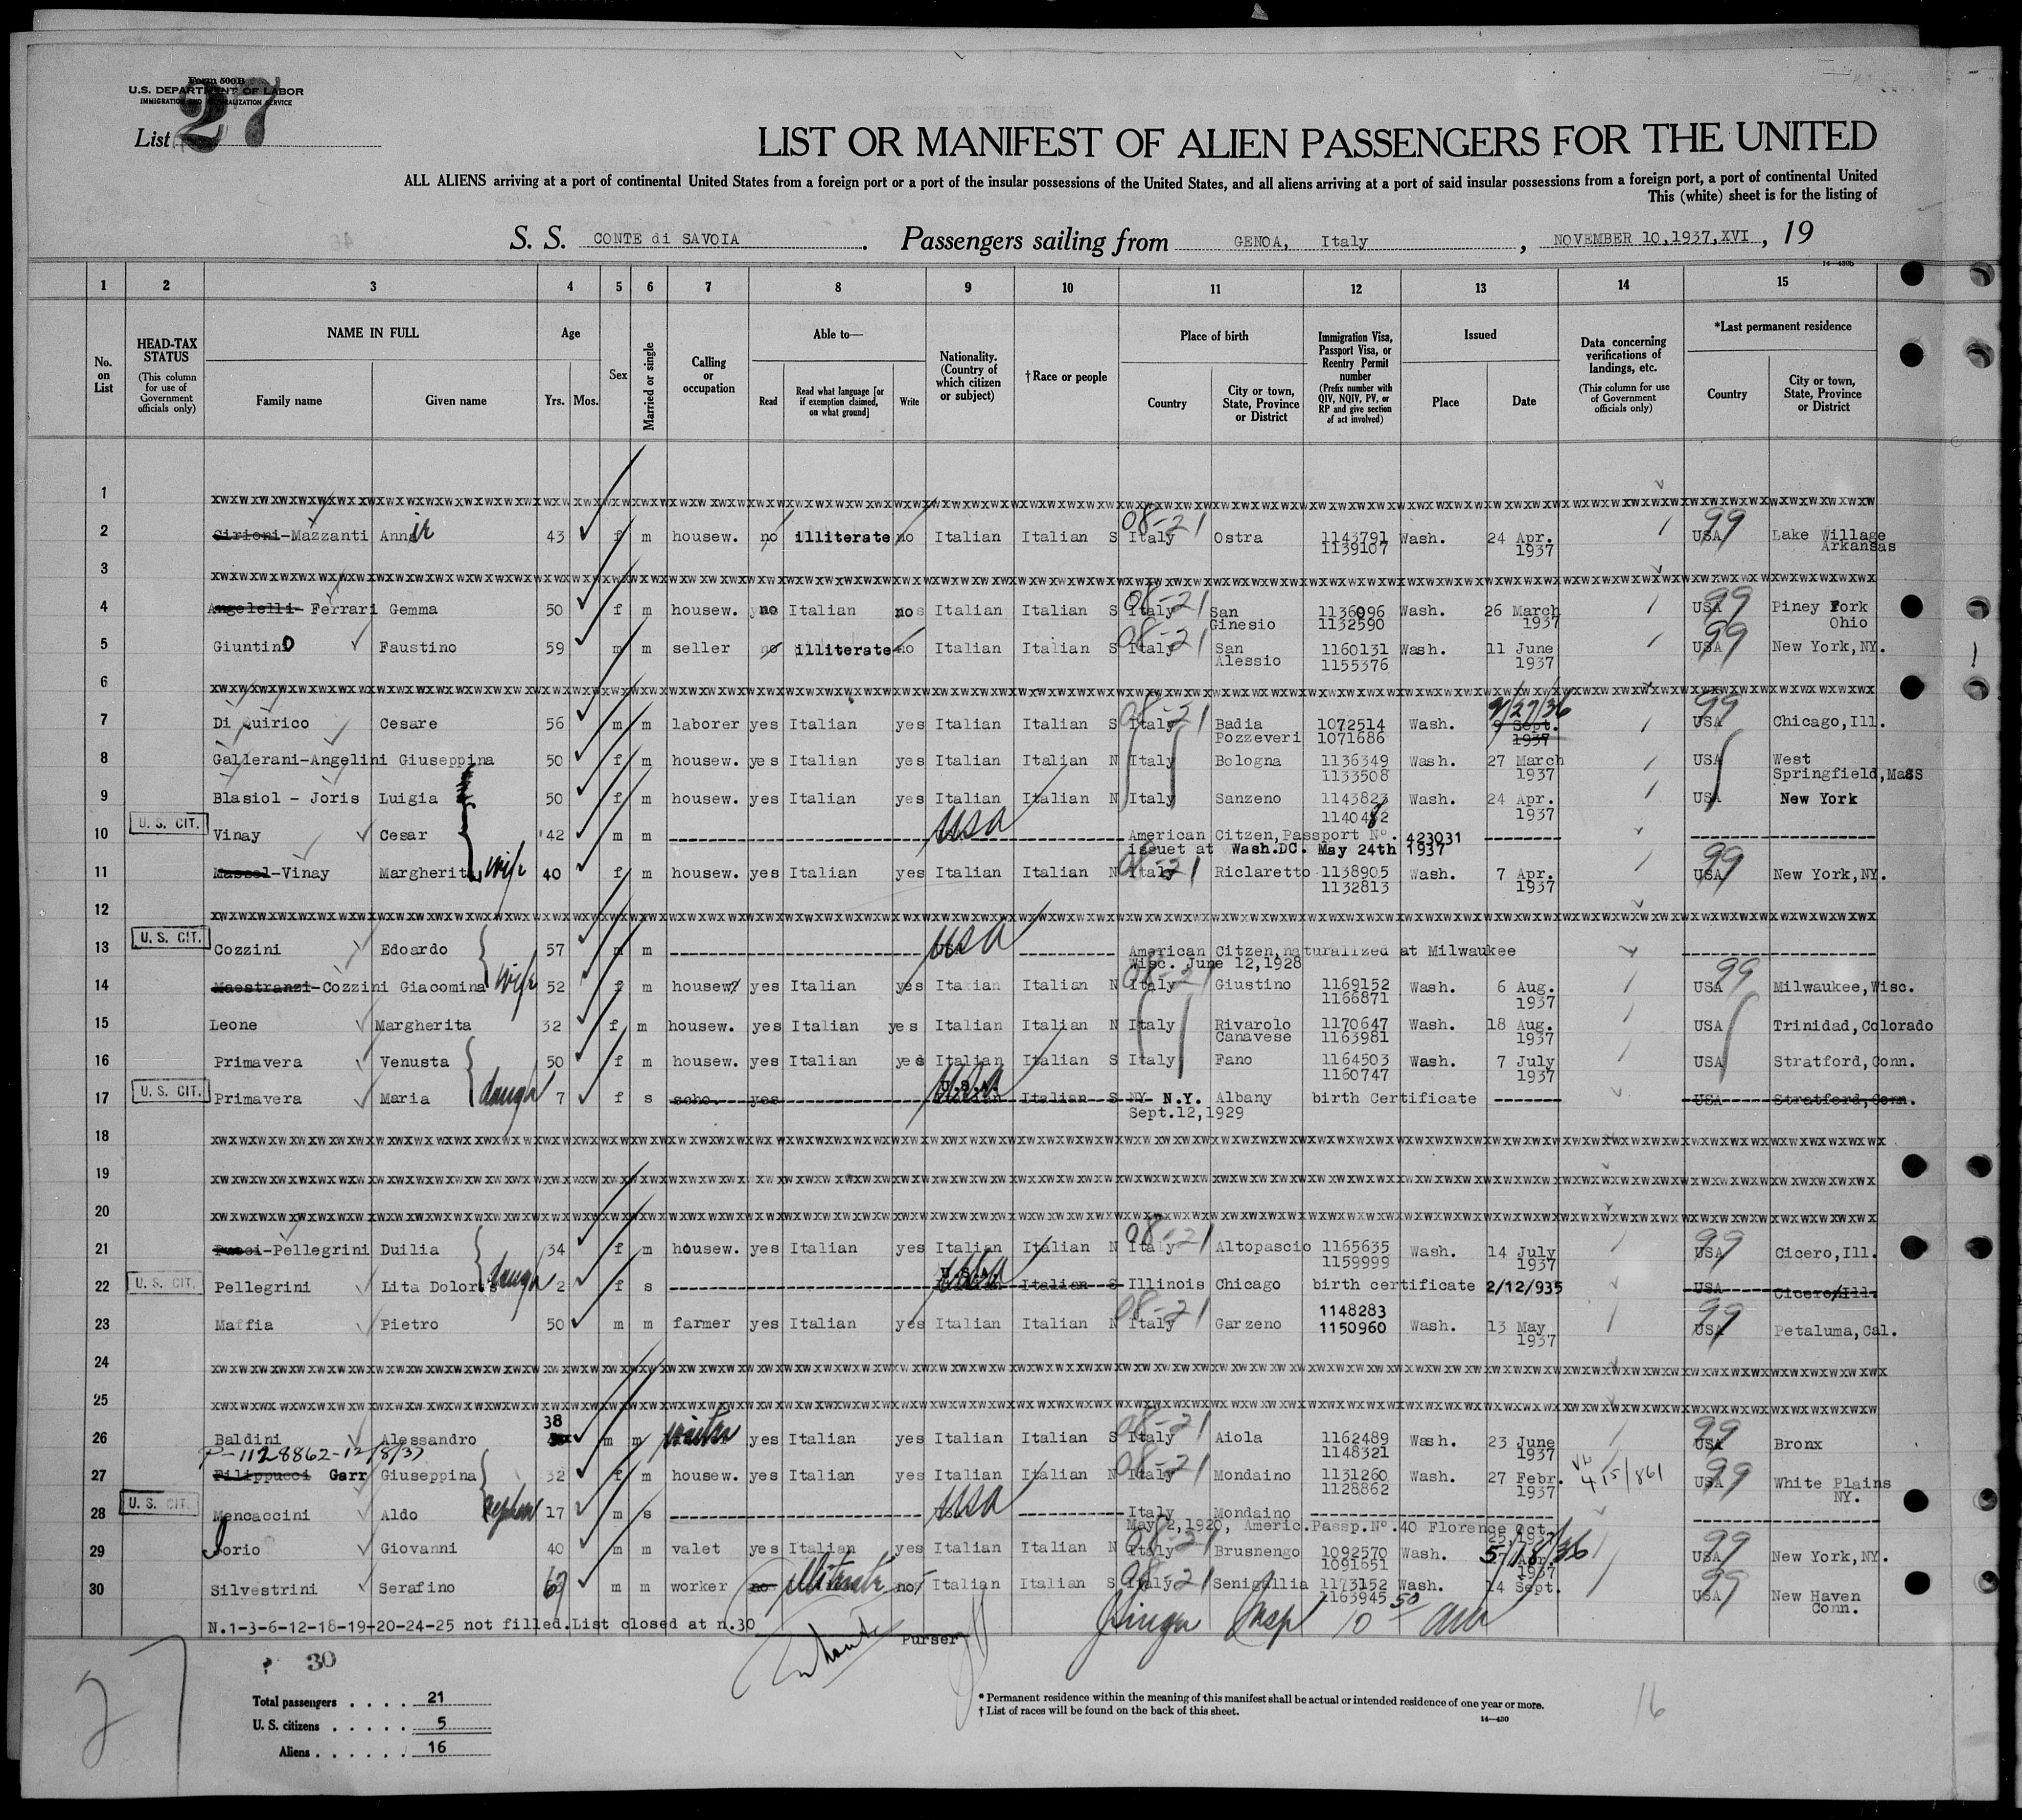 Form 500B
U.S. DEPARTMENT OF LABOR
IMMIGRATION AND NATURALIZATION SERVICE
List 27
LIST OR MANIFEST OF ALIEN PASSENGERS FOR THE UNITED
ALL ALIENS arriving at a port of continental United States from a foreign port or a port of the insular possessions of the United States, and all aliens arriving at a port of said insular possessions from a foreign port, a port of continental United
This (white) sheet is for the listing of
S. S. CONTE di SAVOIA. Passengers sailing from GENOA, Italy, NOVEMBER 10,1937,XVI, 19
14-430b
1 2 3 4 5 6 7 8 9 10 11 12 13 14 15
No. on List
HEAD-TAX STATUS (This column for use of Government officials only)
NAME IN FULL
Family name Given name
Age
Yrs. Mos.
Sex
Married or single
Calling or occupation
Able to—
Read
Read what language [or if exemption claimed, on what ground]
Write
Nationality. (Country of which citizen or subject)
† Race or people
Place of birth
Country
City or town, State, Province or District
Immigration Visa, Passport Visa, or Reentry Permit number (Prefix number with QIV, NQIV, PV, or RP and give section of act involved)
Issued
Place Date
Data concerning verifications of landings, etc. (This column for use of Government officials only)
*Last permanent residence
Country
City or town, State, Province or District
1
2 Cirioni-Mazzanti Anna 43 f m housew. no illiterate no Italian Italian S Italy 08-21 Ostra 1143791 Wash. 24 Apr. USA 99 Lake Willage
1139107 1937 Arkansas
3
4 Angelelli- Ferrari Gemma 50 f m housew. no Italian no Italian Italian S Italy 08-21 San 1136096 Wash. 26 March USA 99 Piney Fork
Ginesio 1132590 1937 Ohio
5 Giuntino Faustino 59 m m seller no illiterate no Italian Italian S Italy 08-21 San 1160131 Wash. 11 June USA 99 New York,NY.
Alessio 1155376 1937
6
7 Di Quirico Cesare 56 m m laborer yes Italian yes Italian Italian S Italy 08-21 Badia 1072514 Wash. 9 Sept. 9/27/36 USA 99 Chicago,Ill.
Pozzeveri 1071686 1937
8 Gallerani-Angelini Giuseppina 50 f m housew. yes Italian yes Italian Italian N Italy Bologna 1136349 Wash. 27 March USA West
1133508 1937 Springfield,Mass
9 Blasiol - Joris Luigia 50 f m housew. yes Italian yes Italian Italian N Italy Sanzeno 1143823 Wash. 24 Apr. USA New York
1140482 1937
U. S. CIT.
10 Vinay Cesar 42 m m USA American Citzen,Passport N°. 423031
issuet at Wash.DC. May 24th 1937
11 Mascel-Vinay Margherita wife 40 f m housew. yes Italian yes Italian Italian N Italy 08-21 Riclaretto 1138905 Wash. 7 Apr. USA 99 New York,NY.
1132813 1937
12
U. S. CIT.
13 Cozzini Edoardo 57 m m USA American Citzen,naturalized at Milwaukee
Wisc. June 12,1928
14 Maestranzi-Cozzini Giacomina wife 52 f m housew. yes Italian yes Italian Italian N Italy 08-21 Giustino 1169152 Wash. 6 Aug. USA 99 Milwaukee,Wisc.
1166871 1937
15 Leone Margherita 32 f m housew. yes Italian yes Italian Italian N Italy Rivarolo 1170647 Wash. 18 Aug. USA Trinidad,Colorado
Canavese 1163981 1937
16 Primavera Venusta 50 f m housew. yes Italian yes Italian Italian S Italy Fano 1164503 Wash. 7 July USA Stratford,Conn.
1160747 1937
U. S. CIT.
17 Primavera Maria 7 f s scho. yes U.S.A. Italian S NY N.Y. Albany birth Certificate USA Stratford,Conn.
Sept.12,1929
18
19
20
21 Pucci-Pellegrini Duilia 34 f m housew. yes Italian yes Italian Italian N Italy 08-21 Altopascio 1165635 Wash. 14 July USA 99 Cicero,Ill.
1159999 1937
U. S. CIT.
22 Pellegrini Lita Dolores 2 f s U.S.A. Italian S Illinois Chicago birth certificate 2/12/935 USA Cicero,Ill.
23 Maffia Pietro 50 m m farmer yes Italian yes Italian Italian N Italy 08-21 Garzeno 1148283
1150960 Wash. 13 May USA 99 Petaluma,Cal.
1937
24
25
26 Baldini Alessandro 38 m m yes Italian yes Italian Italian S Italy 08-21 Aiola 1162489 Wash. 23 June USA 99 Bronx
1148321 1937
P-1128862-12/8/37
27 Filippucci Garr Giuseppina 32 f m housew. yes Italian yes Italian Italian N Italy 08-21 Mondaino 1131260 Wash. 27 Febr. 415/861 USA 99 White Plains
1128862 1937 NY.
U. S. CIT.
28 Mencaccini Aldo nephew 17 m s USA Italy Mondaino
May 2,1920, Americ.Passp.N°.40 Florence Oct.
29 Iorio Giovanni 40 m m valet yes Italian yes Italian Italian N Italy 08-21 Brusnengo 1092570 Wash. 5/18/36 USA 99 New York,NY.
1091651 1937
30 Silvestrini Serafino m m worker no illiterate no Italian Italian S Italy 08-21 Senigallia 1173152 Wash. 14 Sept. USA 99 New Haven
1163945 Conn.
N.1-3-6-12-18-19-20-24-25 not filled.List closed at n.30
Purser
Insp 10 50 am
30
27
Total passengers .... 21
U. S. citizens ..... 5
Aliens ...... 16
* Permanent residence within the meaning of this manifest shall be actual or intended residence of one year or more.
† List of races will be found on the back of this sheet.
14-430
16